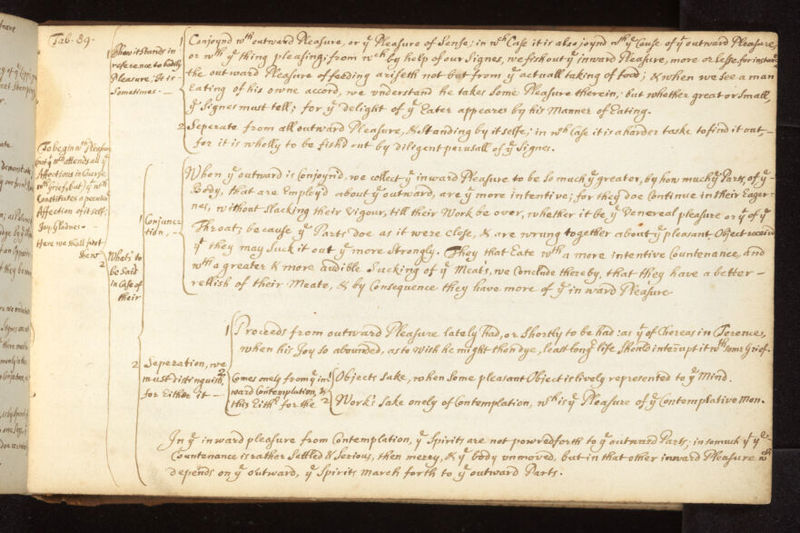 Tab. 89.
To begin wth Pleasure,
not yt wch attends all ye
Affections in Course
wth grief, but ye wch
Constitutes a peculiar
Affection of it self;
Joy, Gladnes-
Here we shall first
shew
1 How it stands in
reference to bodily
Pleasure; It is
Sometimes -
1 Conjoynd wth outward Pleasure, or ye Pleasure of Sense; in wch Case it is also joynd wth ye Cause of ye outward Pleasure,
or wth ye thing pleasing; from wch by help of our Signes, we fish out ye inward Pleasure, more or lesse, for instance
the outward Pleasure of feeding ariseth not but from ye actuall taking of food; & when we see a man
Eating of his owne accord, we understand he takes some Pleasure therein; but whether great or small,
ye Signes must tell; for ye delight of ye Eater appeares by his Manner of Eating.
2 Seperate from all outward Pleasure, & Standing by it selfe; in wch case it is a harder taske to find it out,
for it is wholly to be fish'd out by diligent perusall of ye Signes.
2 What's to
be said
in Case of
their
1 Conjunc-
tion, -
When ye outward is Conjoyn'd, we collect ye inward Pleasure to be so much ye greater, by how much ye Parts of ye
Body, that are Employ'd about ye outward, are ye more intentive; for they doe Continue in their Eager-
nes, without slacking their Vigour, till their Work be over, whether it be ye Venereal pleasure or ye of ye
Throat; because ye Parts doe as it were close, & are wrung together about ye pleasant Object received
yt they may suck it out ye more strongly. They that Eate wth a more intentive Countenance, and
wth a greater & more audible Sucking of ye Meats, we Conclude thereby, that they have a better-
rellish of their Meate, & by Consequence they have more of ye inward Pleasure
2 Seperation, we
must distinguish,
for Either it -
1 Proceeds from outward Pleasure lately had, or shortly to be had: as ye of Chereas in Terence,
when his Joy so abounded, as to wish he might then dye, least long life should interrupt it wth some Grief.
2 Comes onely from ye in-
ward Contemplation, &
this Eithr for the
1 Objects Sake, when some pleasant Object is lively represented to ye Mind.
2 Work's Sake onely of Contemplation, wch is ye Pleasure of ye Contemplative Man.
In ye inward pleasure from Contemplation, ye Spirits are not powred forth to ye outward Parts; insomuch yt ye
Countenance is rather Settled & Serious, then merry, & ye body unmoved, but in that other inward Pleasure wch
depends on ye outward, ye Spirits march forth to ye outward Parts.